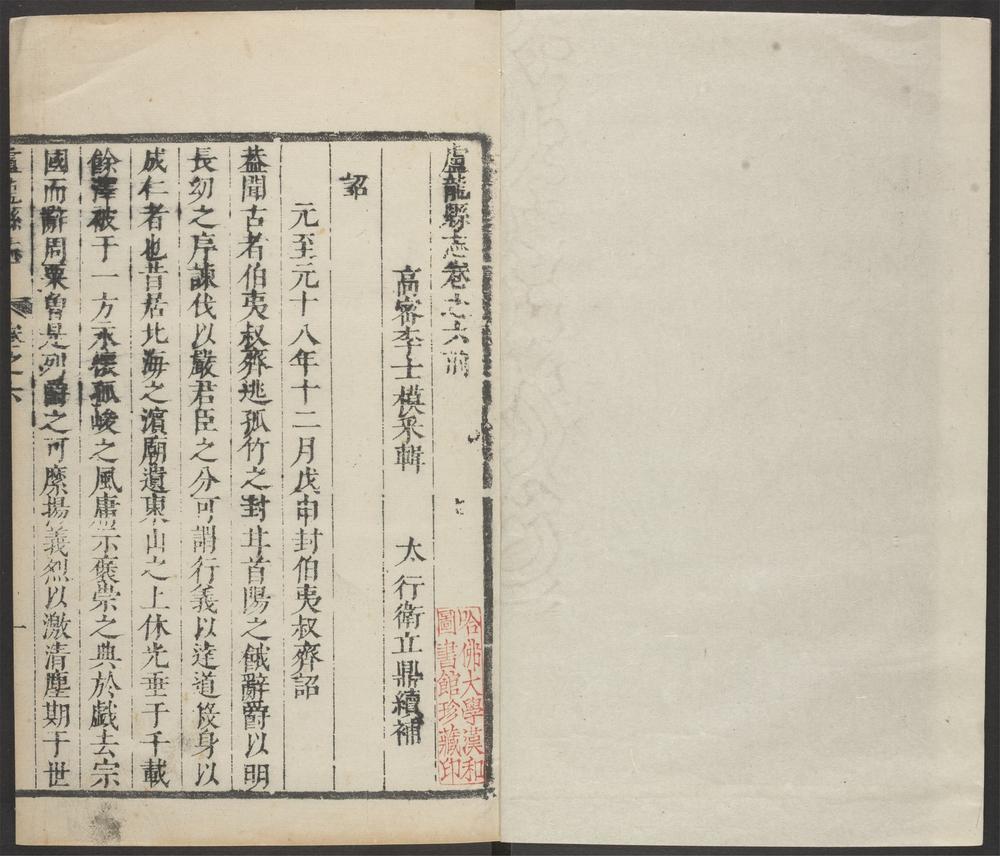 盧龍縣志卷之六前
高密李士模采輯　太行衛立鼎續補
詔
元至元十八年十二月戊申封伯夷叔齊詔
葢聞古者伯夷叔齊逃孤竹之封甘首陽之餓辭爵以明
長幼之序諫伐以嚴君臣之分可謂行義以達道殺身以
成仁者也昔居北海之濱廟遺東山之上休光垂于千載
餘澤被于一方永懷孤峻之風庸示褒崇之典於戲去宗
國而辭周粟曾是列爵之可縻揚義烈以激清塵期于世
盧龍縣志　卷之六　一
哈佛大學漢和
圖書館珍藏印